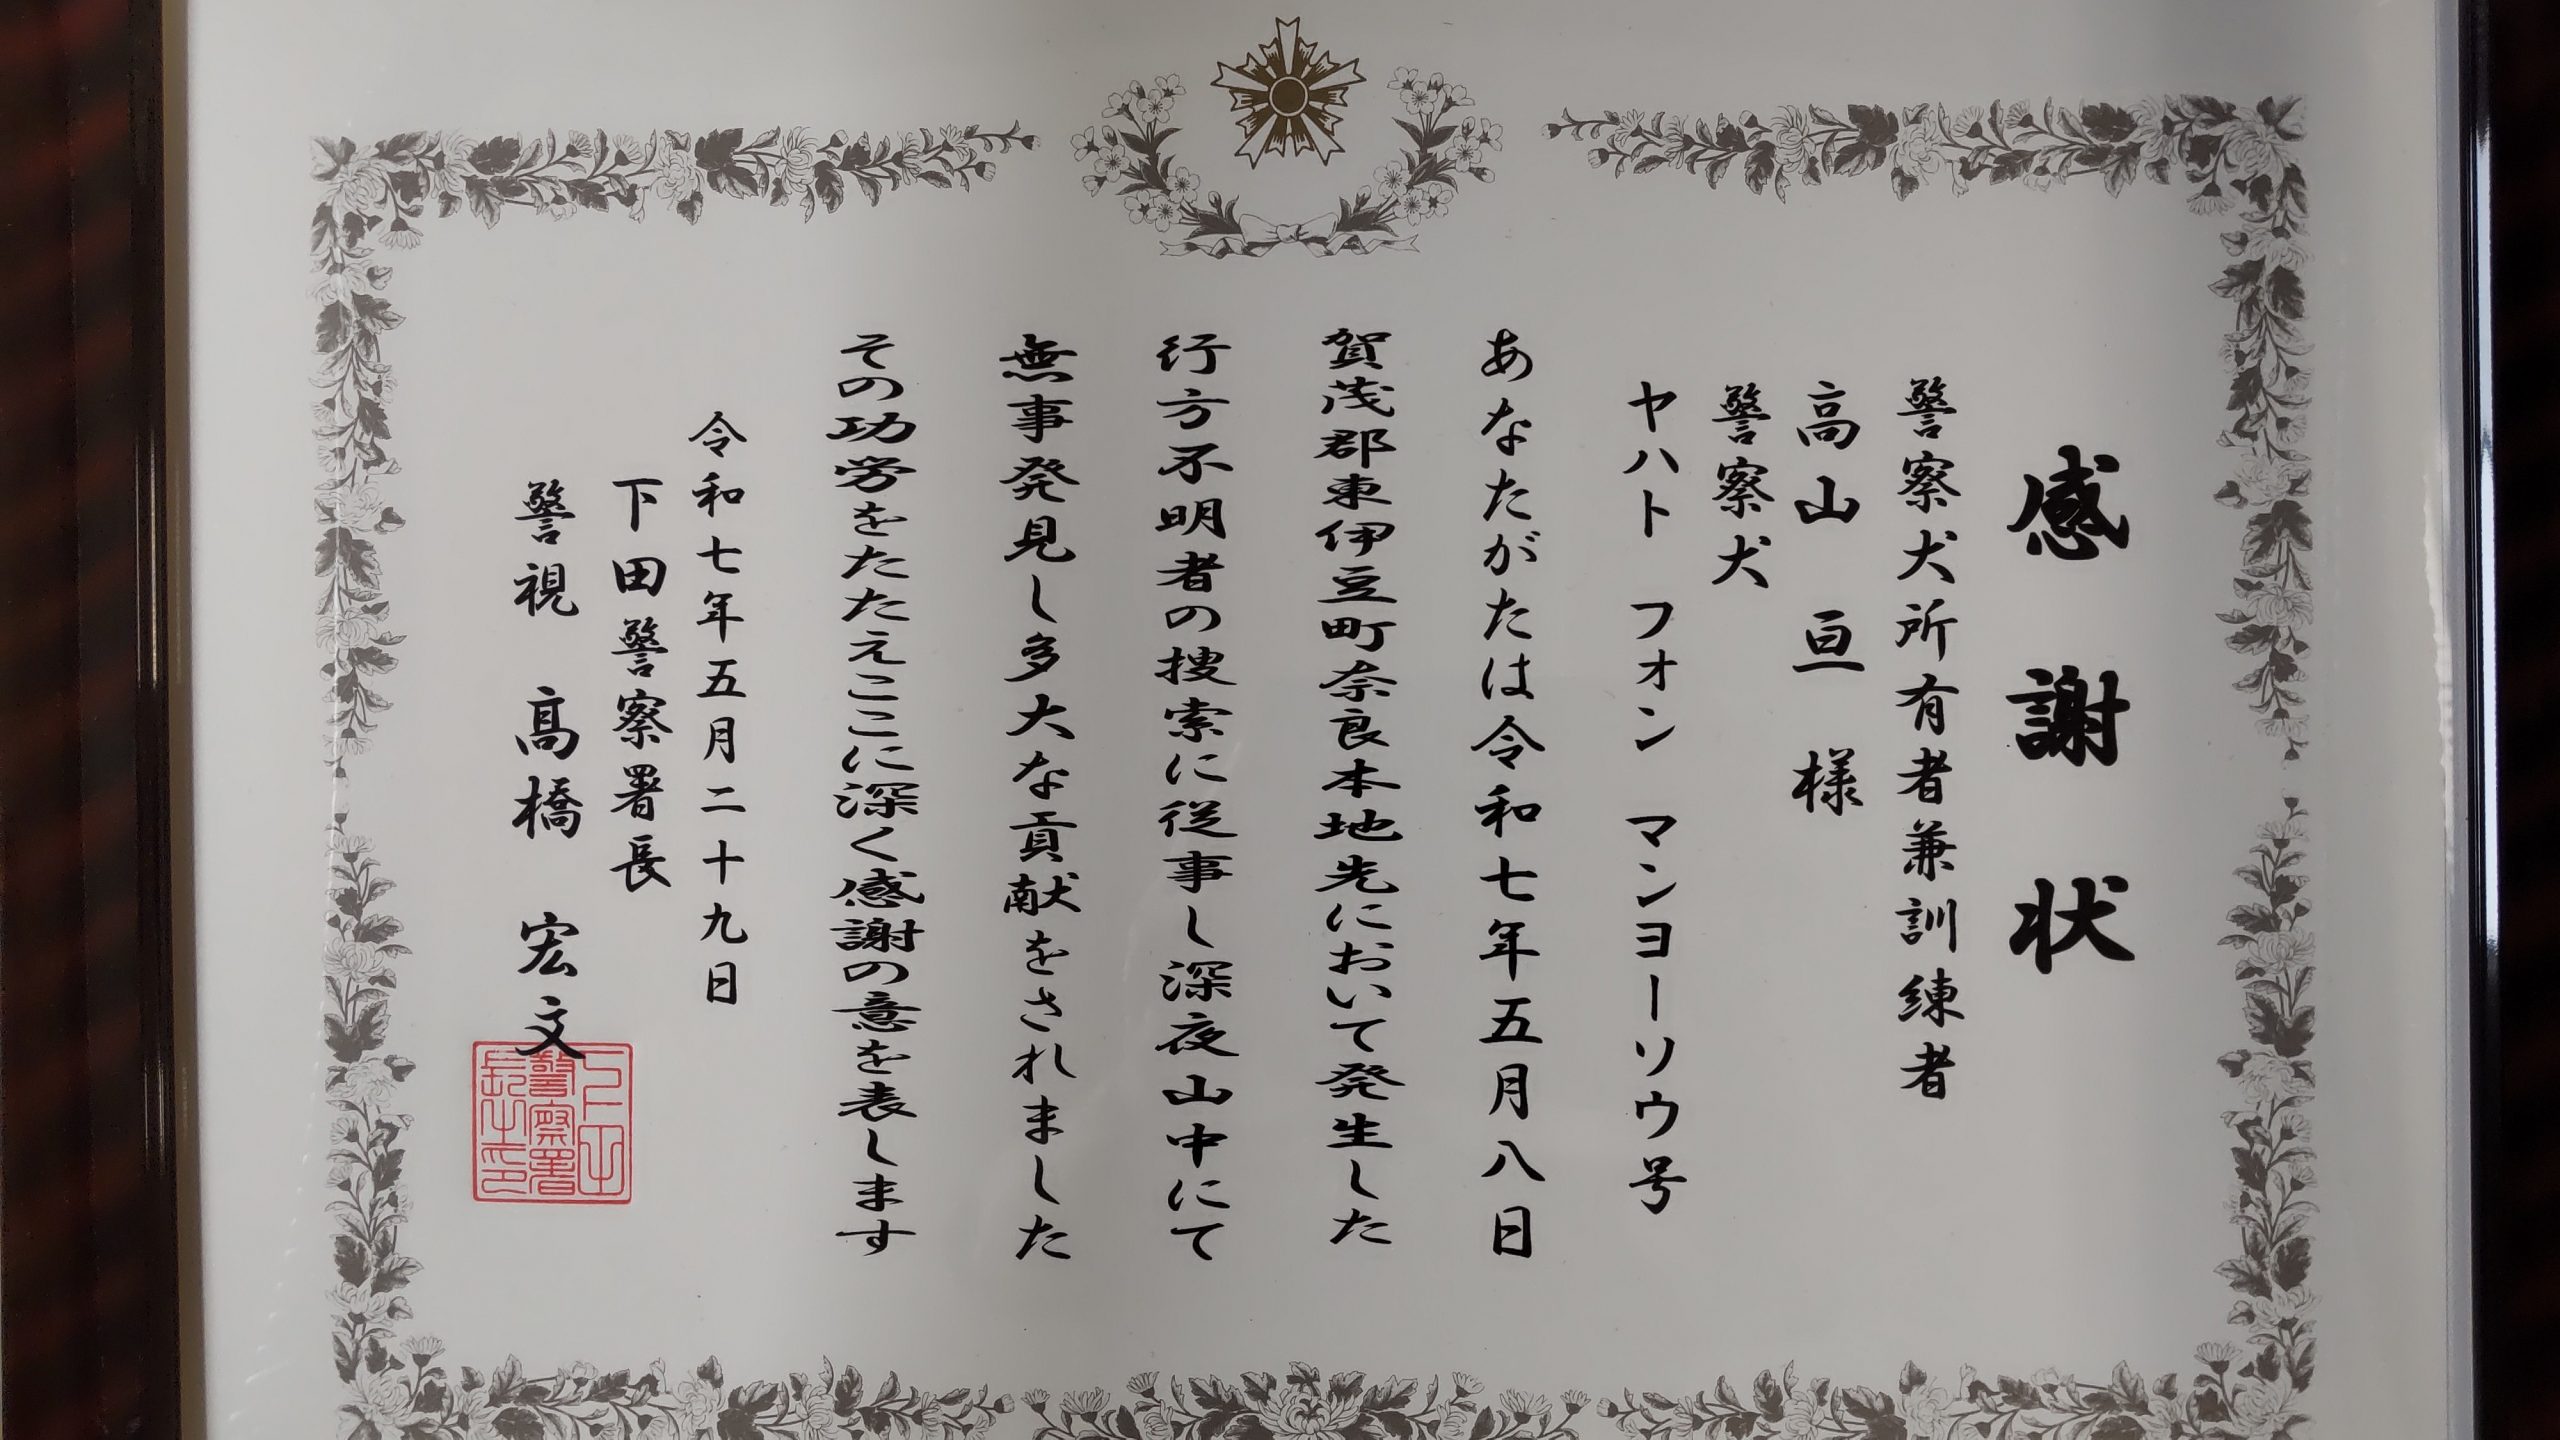 感謝状
警察犬所有者兼訓練者
高山 亘 様
警察犬
ヤハト フォン マンヨーソウ号
あなたがたは令和七年五月八日
賀茂郡東伊豆町奈良本地先において発生した
行方不明者の捜索に従事し深夜山中にて
無事発見し多大な貢献をされました
その功労をたたえここに深く感謝の意を表します
令和七年五月二十九日
下田警察署長
警視 髙橋 宏文
下田警察署長之印